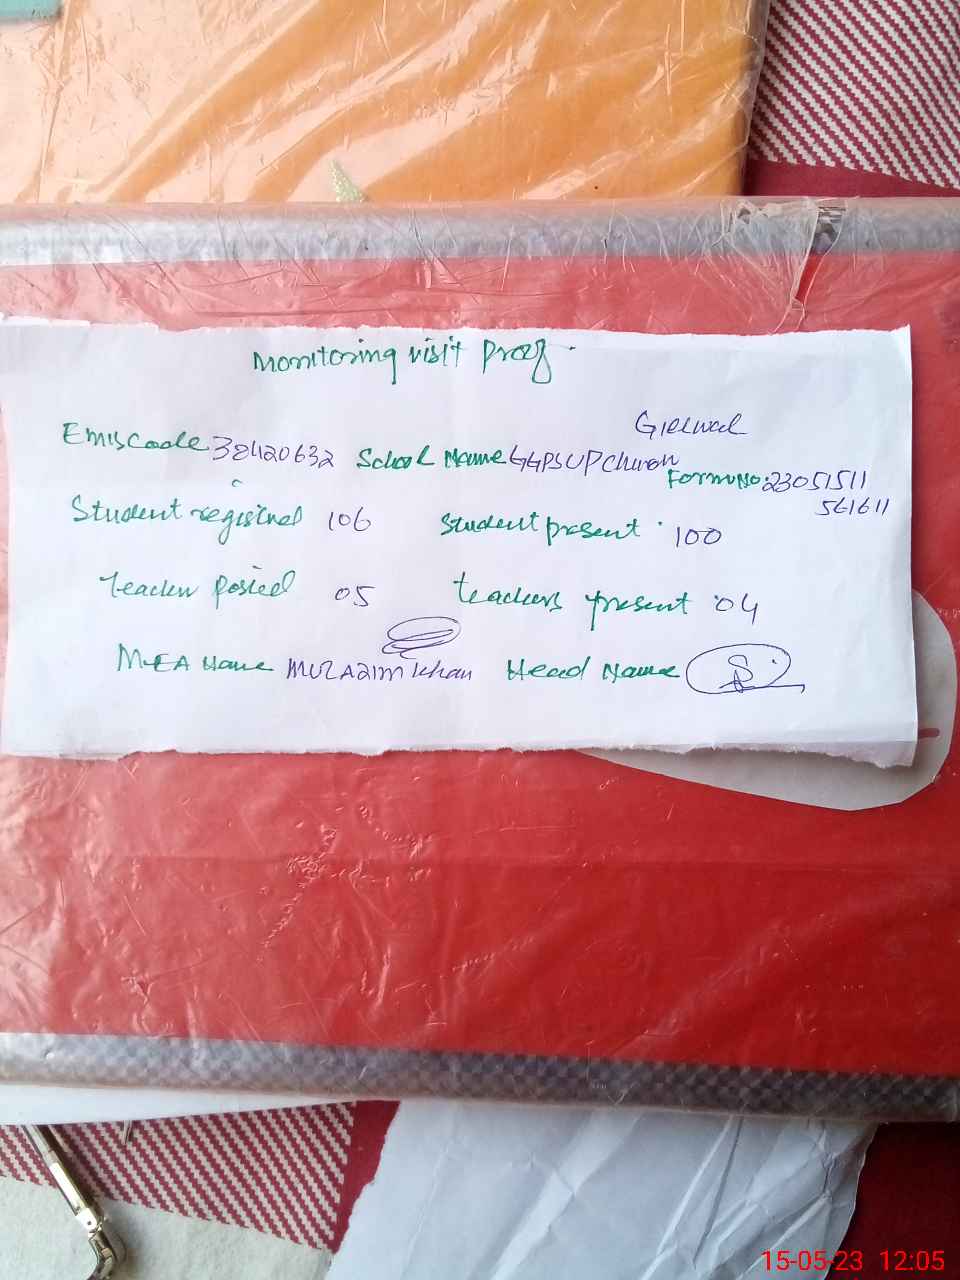 Monitoring visit Proof
Girlwal
Emis Coade 38420632 School Name GGPS UP Churah
Form No: 23051511
561611
Student registred 106 Student present 100
Teacher Posted 05 teachers present 04
MEA Name MUZAZIM Khan Head Name
15-05-23 12:05